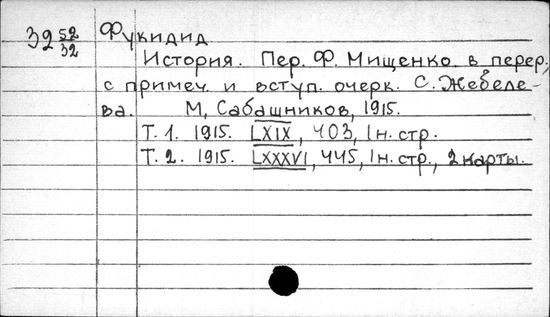 32 52/32 Фукидид
История. Пер. Ф. Мищенко в перер.,
с примеч. и вступ. очерк. С. Жебеле-
ва. М, Сабашников, 1915.
Т. 1. 1915. LXIX, 403, 1 н. стр.
Т. 2. 1915. LXXXVI, 445, 1 н. стр., 2 карты.